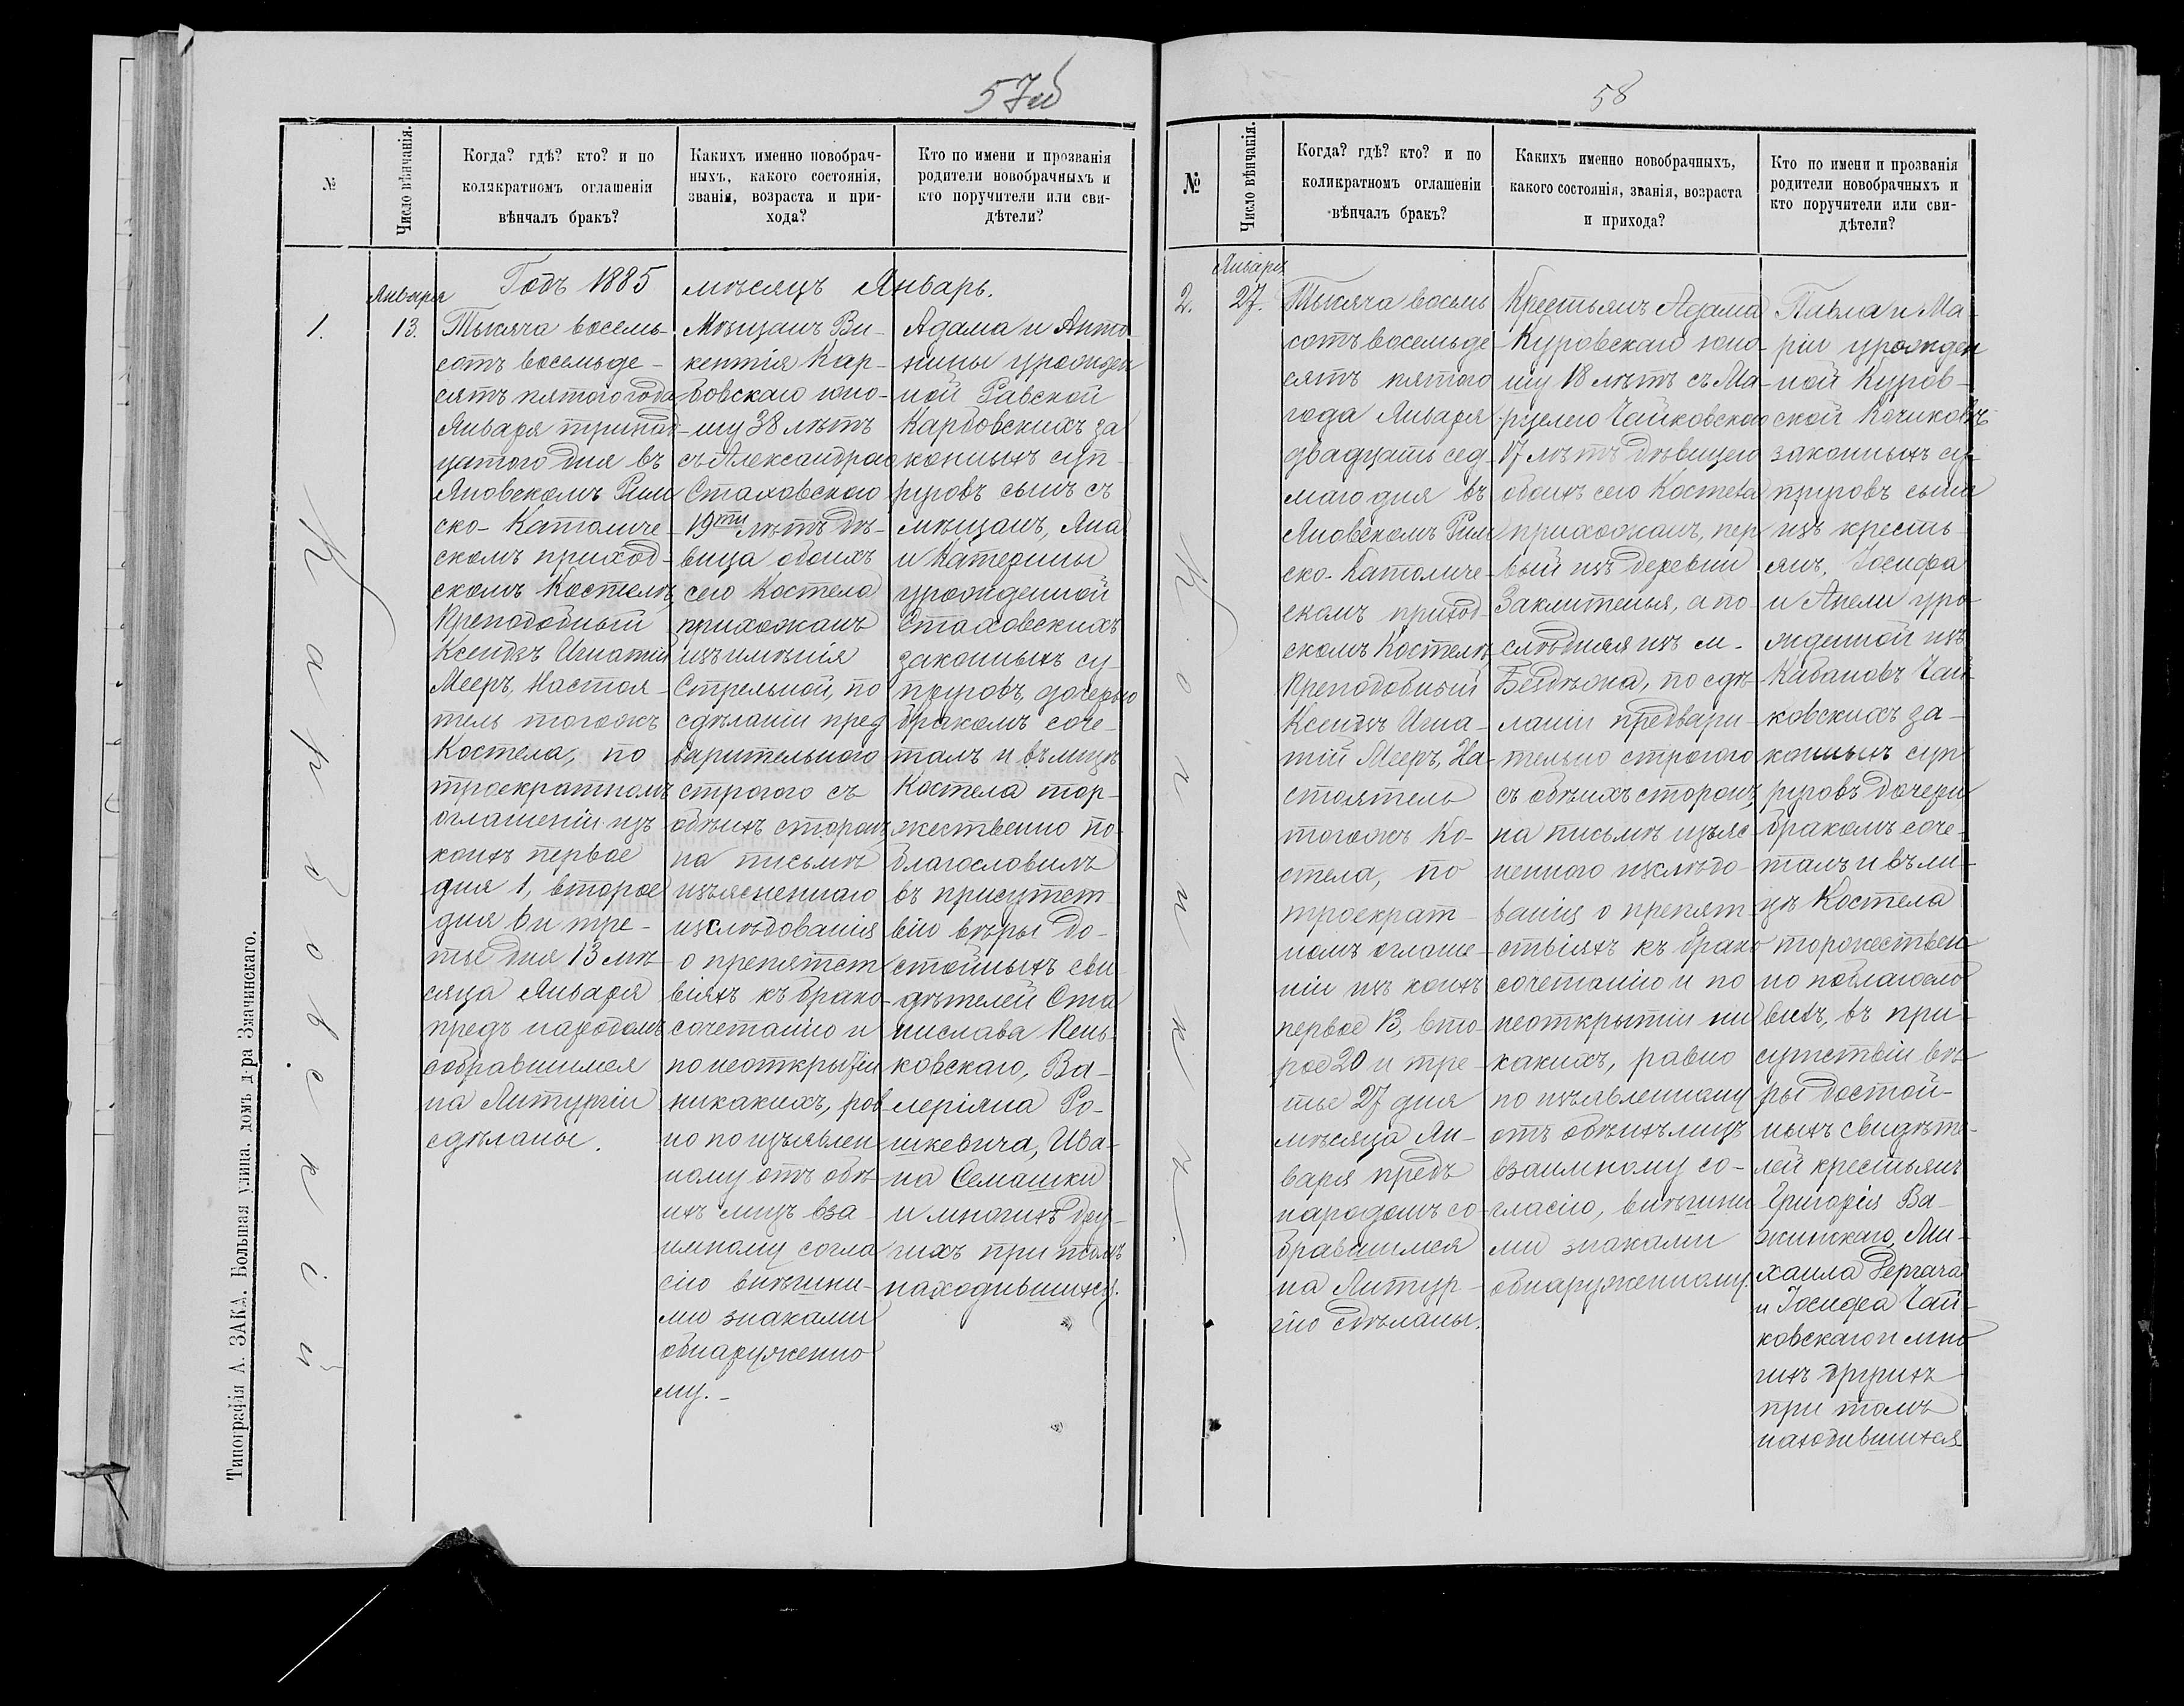 57об
№
Число вѣнчанія.
Когда? гдѣ? кто? и по
коликратномъ оглашеніи
вѣнчалъ бракъ?
Какихъ именно новобрач-
ныхъ, какого состоянія,
званія, возраста и при-
хода?
Кто по имени и прозванія
родители новобрачныхъ и
кто поручители или сви-
дѣтели?
Годъ 1885 мѣсяцъ Январь.
1.
Января
13.
Тысяча восемь-
сотъ восемьде-
сятъ пятого года
Января тринад-
цатого дня въ
Яновскомъ Рим
ско-Католиче
скомъ приход-
скомъ Костелѣ,
Преподобный
Ксендзъ Игнатій
Мееръ, Настоя-
тель тогожъ
Костела, по
троекратномъ
оглашеніи изъ
коихъ первое
дня 1, второе
дня 6 и тре-
тье дня 13 мѣ-
сяца Января
предъ народомъ
собравшимся
на Литургіи
сдѣланы.
Мѣщанъ Ви-
кентія Кар-
бовскаго юно-
шу 38 лѣтъ
съ Александрою
Стаховскою
19ти лѣтъ дѣ-
вица обоихъ
сего Костела
прихожанъ
изъ имѣнія
Стрельной, по
сдѣланіи пред
варительного
строгого съ
обѣихъ сторонъ
на письмѣ
изъясненнаго
изслѣдованія
о препятст
віяхъ къ брако-
сочетанію и
по неоткрытіи
никакихъ, рав
но по изъявлен
ному отъ обѣ-
ихъ лицъ вза
имному согла
сію внѣшни-
ми знаками
обнаруженно
му.-
Адама и Анто
нины урожден
ной Равской
Карбовскихъ за
конныхъ суп-
руговъ сынъ съ
мѣщанъ, Яна
и Катерины
урожденной
Стаховскихъ
законныхъ су-
пруговъ, дочерью
бракомъ соче-
талъ и въ лицѣ
Костела тор-
жественно по-
благословилъ
въ присутст
віи вѣры до-
стойныхъ сви-
дѣтелей Ста
нислава Пень-
ковскаго, Ва-
леріяна Ро-
шкевича, Ива-
на Семашки
и многихъ дру-
гихъ при томъ
находившихся.
Карбовскій
Типографія А. ЗАКА. Большая улица. домъ д-ра Значинскаго.
58
№
Число вѣнчанія.
Когда? гдѣ? кто? и по
коликратномъ оглашеніи
вѣнчалъ бракъ?
Какихъ именно новобрачныхъ,
какого состоянія, званія, возраста
и прихода?
Кто по имени и прозванія
родители новобрачныхъ и
кто поручители или сви-
дѣтели?
2.
Января
27.
Тысяча восемь
сотъ восемьде
сятъ пятого
года Января
двадцать сед-
маго дня въ
Яновскомъ Рим
ско-Католиче-
скомъ приход-
скомъ Костелѣ
Преподобный
Ксендзъ Игна-
тій Мееръ, На-
стоятель
тогожъ Ко-
стела, по
троекрат-
номъ оглаше-
ніи изъ коихъ
первое 13, вто-
рое 20 и тре-
тье 27 дня
мѣсяца Ян-
варя предъ
народомъ со-
бравшимся
на Литур-
гію сдѣланы.
Крестьянъ Адама
Куровскаго юно-
шу 18 лѣтъ съ Ма-
рцелею Чайковскою
17 лѣтъ дѣвицею
обоихъ сего Костела
прихожанъ, пер
вый изъ деревни
Заклитенья, а по
слѣдняя изъ м.
Бездѣжа, по сдѣ-
ланіи предвари-
тельно строгого
съ обѣихъ сторонъ
на письмѣ изъяс
неннаго изслѣдо-
ванія о препят-
ствіяхъ къ брако
сочетанію и по
неоткрытіи ни
какихъ, равно
по изъявленному
отъ обѣихъ лицъ
взаимному со-
гласію, внѣшни
ми знаками
обнаруженному.
Павла и Ма-
ріи урожден
ной Куров-
ской
законныхъ су-
пруговъ сына
изъ кресть-
янъ, Іосифа
и Анели уро-
жденной изъ
Кабановъ Чай-
ковскихъ за-
конныхъ суп
руговъ дочери
бракомъ соче-
талъ и въ ли-
цѣ Костела
торжествен
но поблагосло
вилъ, въ при-
сутствіи вѣ-
ры достой-
ныхъ свидѣте-
лей крестьянъ
Григорія Ва-
жинскаго, Ми-
хаила Дергача
и Іосифа Чай-
ковскаго и мно
гихъ другихъ
при томъ
находившихся